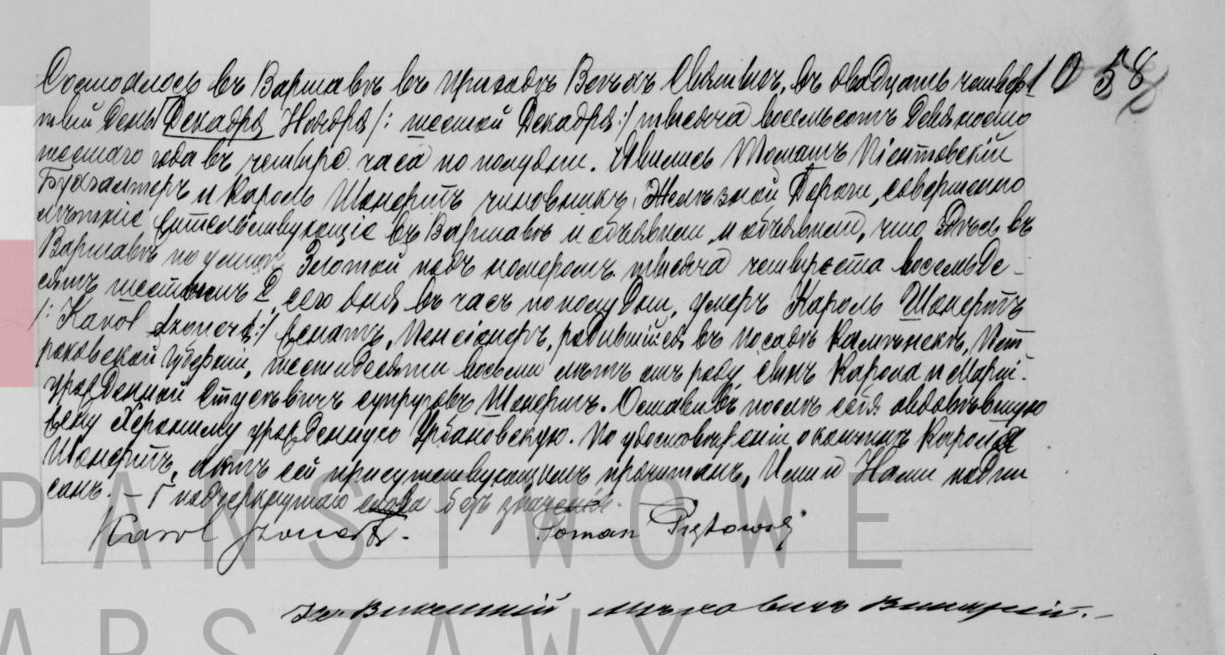 Состоялось въ Варшавѣ въ приходѣ Всѣхъ Святыхъ, въ двадцать четвер 1058
тый день Декабря Ноября /: шестой Декабря :/ тысяча восемьсотъ девяносто
шестаго года въ четыре часа по полудни. Явились Томашъ Піентовскій
Бухгалтеръ и Кароль Шонертъ чиновникъ Желѣзной Дороги, совершенно
лѣтніе жительствующіе въ Варшавѣ и объявили, что здѣсь въ
Варшавѣ по улицѣ Золотой подъ номеромъ тысяча четыреста восемьде-
сятъ шестымъ сего дня въ часъ по полудни, умеръ Кароль Шонертъ
/: Karol Szonert :/ женатъ, Пенсіонеръ, родившійся въ посадѣ Каменскъ, Пет
роковской Губерніи, шестидесяти восьми лѣтъ отъ роду, сынъ Карола и Маріи
урожденной супруговъ Шонертъ. Оставивъ послѣ себя овдовѣвшую
жену Херониму урожденную Урбановскую. По удостовѣреніи о кончинѣ Кароля
Шонертъ, актъ сей присутствующимъ прочитанъ, Ими и Нами подпи
санъ. – подчеркнутаго слова безъ значенія.
Karol Szonert. Toman Piętowski
PAŃSTWOWE
WARSZAWY